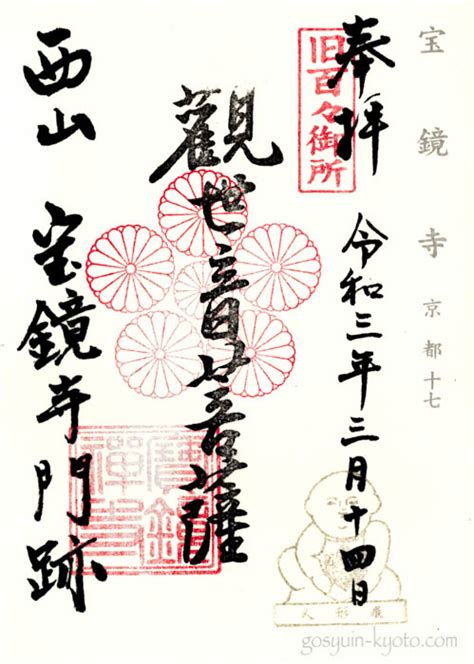 宝鏡寺 京都十七
奉拝
旧百々御所
令和三年三月十四日
觀世音菩薩
寶鏡禅寺
西山 宝鏡寺門跡
人形展
gosyuin-kyoto.com